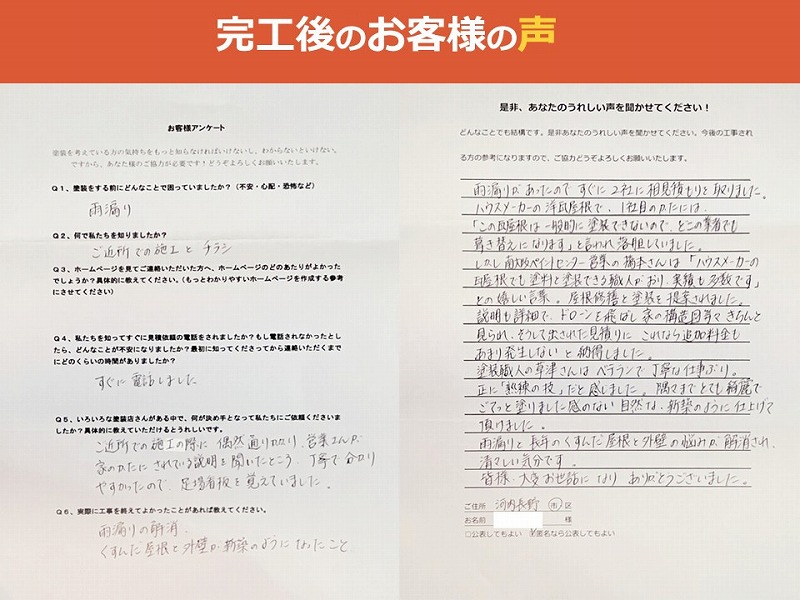 完工後のお客様の声
お客様アンケート
塗装を考えている方の気持ちをもっと知らなければいけないし、わからないといけない。
ですから、あなた様のご協力が必要です！どうぞよろしくお願いいたします。
Q1、塗装をする前にどんなことで困っていましたか？（不安・心配・恐怖など）
雨漏り
Q2、何で私たちを知りましたか？
ご近所での施工と チラシ
Q3、ホームページを見てご連絡いただいた方へ、ホームページのどのあたりがよかった
でしょうか？具体的に教えてください。（もっとわかりやすいホームページを作成する参考
にさせてください）
Q4、私たちを知ってすぐに見積依頼の電話をされましたか？もし電話されなかったとし
たら、どんなことが不安になりましたか？最初に知ってくださってから連絡いただくまで
にどのくらいの時間がありましたか？
すぐに電話しました
Q5、いろいろな塗装店さんがある中で、何が決め手となって私たちにご依頼くださいま
したか？具体的に教えていただけるとうれしいです。
ご近所での施工の際に 偶然通りかかり、営業さんが
家のかたに されている説明を聞いたところ、丁寧で分かり
やすかったので、足場看板を覚えていました。
Q6、実際に工事を終えてよかったことがあれば教えてください。
雨漏りの解消。
くすんだ屋根と外壁が新築のようになったこと
是非、あなたのうれしい声を聞かせてください！
どんなことでも結構です。是非あなたのうれしい声を聞かせてください。今後の工事され
る方の参考になりますので、ご協力どうぞよろしくお願いいたします。
雨漏りがあったので すぐに2社に相見積もりを取りました。
ハウスメーカーの洋瓦屋根で、1社目のかたには、
「この瓦屋根は一般的に塗装できないので、どこの業者でも
葺き替えになります」と言われ落胆していました。
しかし南大阪ペイントセンター営業の橋本さんは「ハウスメーカーの
瓦屋根でも塗料と塗装できる職人がおり、実績も多数です」
との嬉しい言葉。屋根修繕と塗装を提案されました。
説明も詳細で、ドローンを飛ばし 家の構造図等々 きちんと
見られ、そうして出された見積りに これなら追加料金も
あまり発生しないと納得しました。
塗装職人の草津さんは ベテランで丁寧な仕事ぶり。
正に「熟練の技」だと感じました。隅々までとても綺麗で
ごてっと塗りました感のない 自然な、新築のように仕上げて
頂けました。
雨漏りと長年のくすんだ屋根と外壁の悩みが解消され、
清々しい気分です。
皆様、大変お世話になり ありがとうございました。
ご住所 河内長野 市 区
お名前 様
□公表してもよい ☑匿名なら公表してもよい